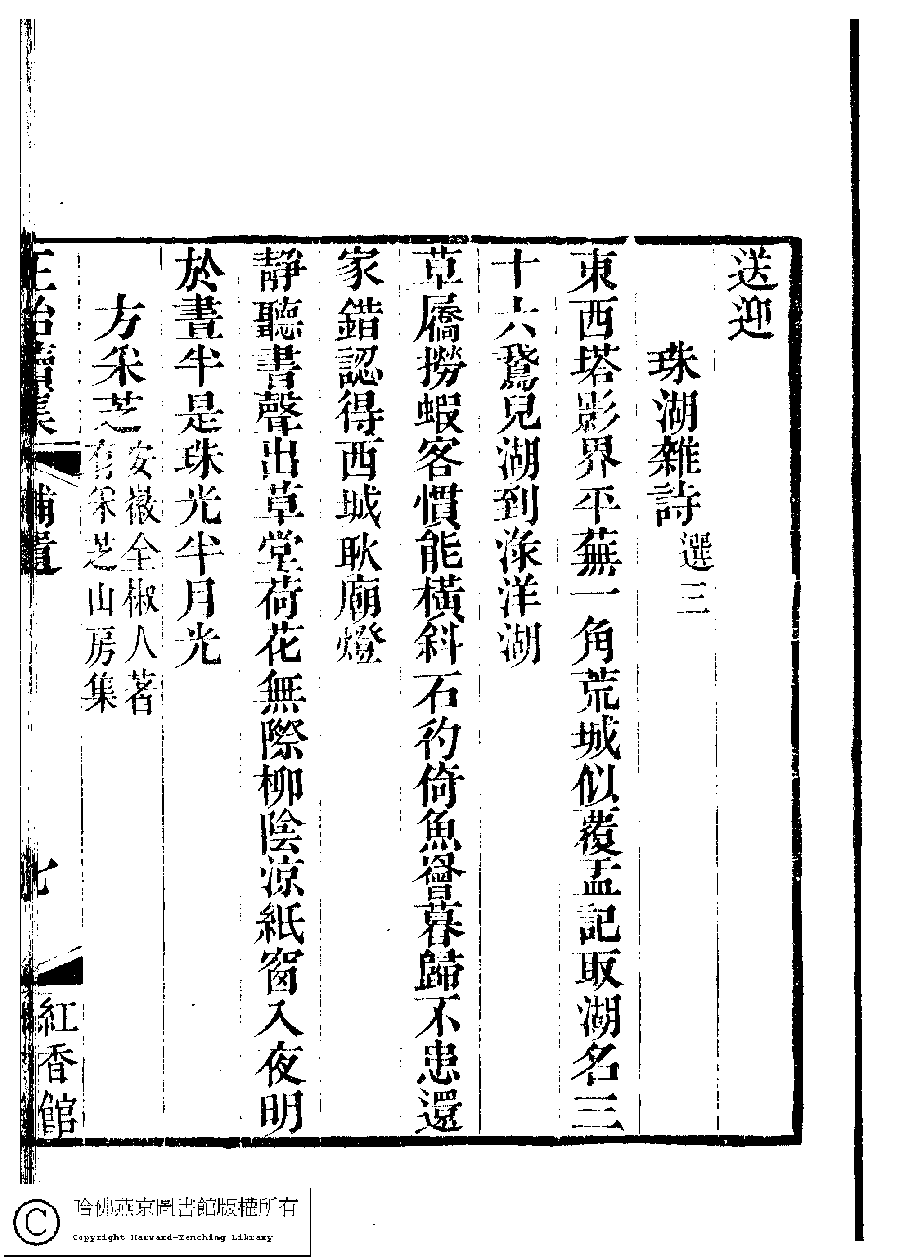 送迎
珠湖雜詩 選三
東西塔影界平蕪一角荒城似覆盂記取湖名三
十六鵞兒湖到淥洋湖
草屩撈蝦客慣能橫斜石彴倚魚罾暮歸不患還
家錯認得西城耿廟燈
靜聽書聲出草堂荷花無際柳陰涼紙窗入夜明
於晝半是珠光半月光
方采芝 安徽全椒人著
有采芝山房集
正始續集 補遺 七 紅香館
哈佛燕京圖書館版權所有
Copyright Harvard-Yenching Library